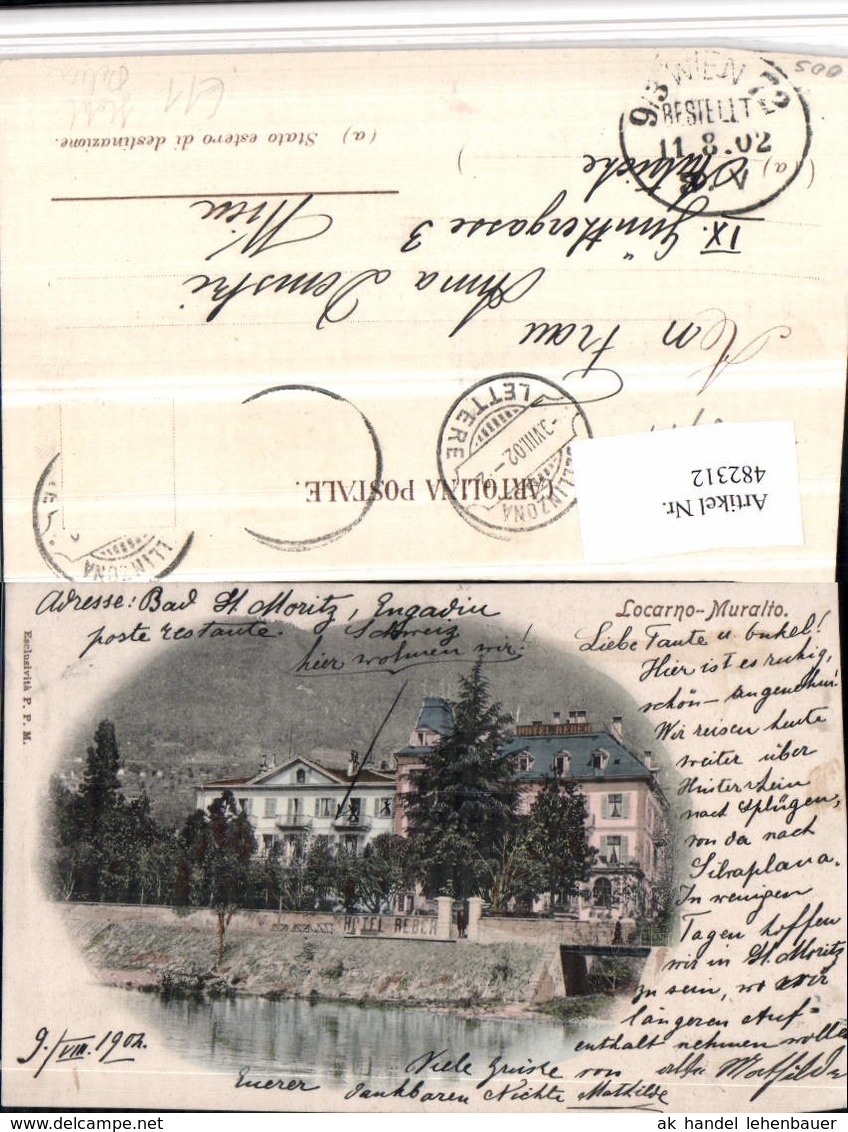 Stato estero di destinazione.
(a)
WIEN
BESTELLT
11.8.02
(a)
IX. Günthergasse 3
Wien
Anna
Frau
CARTOLINA POSTALE.
BELLINZONA
LETTERE
Artikel Nr.
482312
Adresse: Bad St. Moritz, Engadin
poste restante. Schweiz
hier wohnen wir!
Locarno-Muralto.
Esclusività P. P. M.
Liebe Tante u. Onkel!
Hier ist es ruhig,
schön - angenehm!
Wir reisen heute
weiter über
Hinterrhein
nach Splügen,
von da nach
Silvaplana.
In wenigen
Tagen hoffen
wir in St. Moritz
zu sein, wo wir
längeren Auf-
enthalt nehmen wollen
HOTEL REBER
HOTEL REBER
9./VIII. 1902.
Viele Grüsse von
Euerer
dankbaren Nichte Mathilde
ak handel lehenbauer